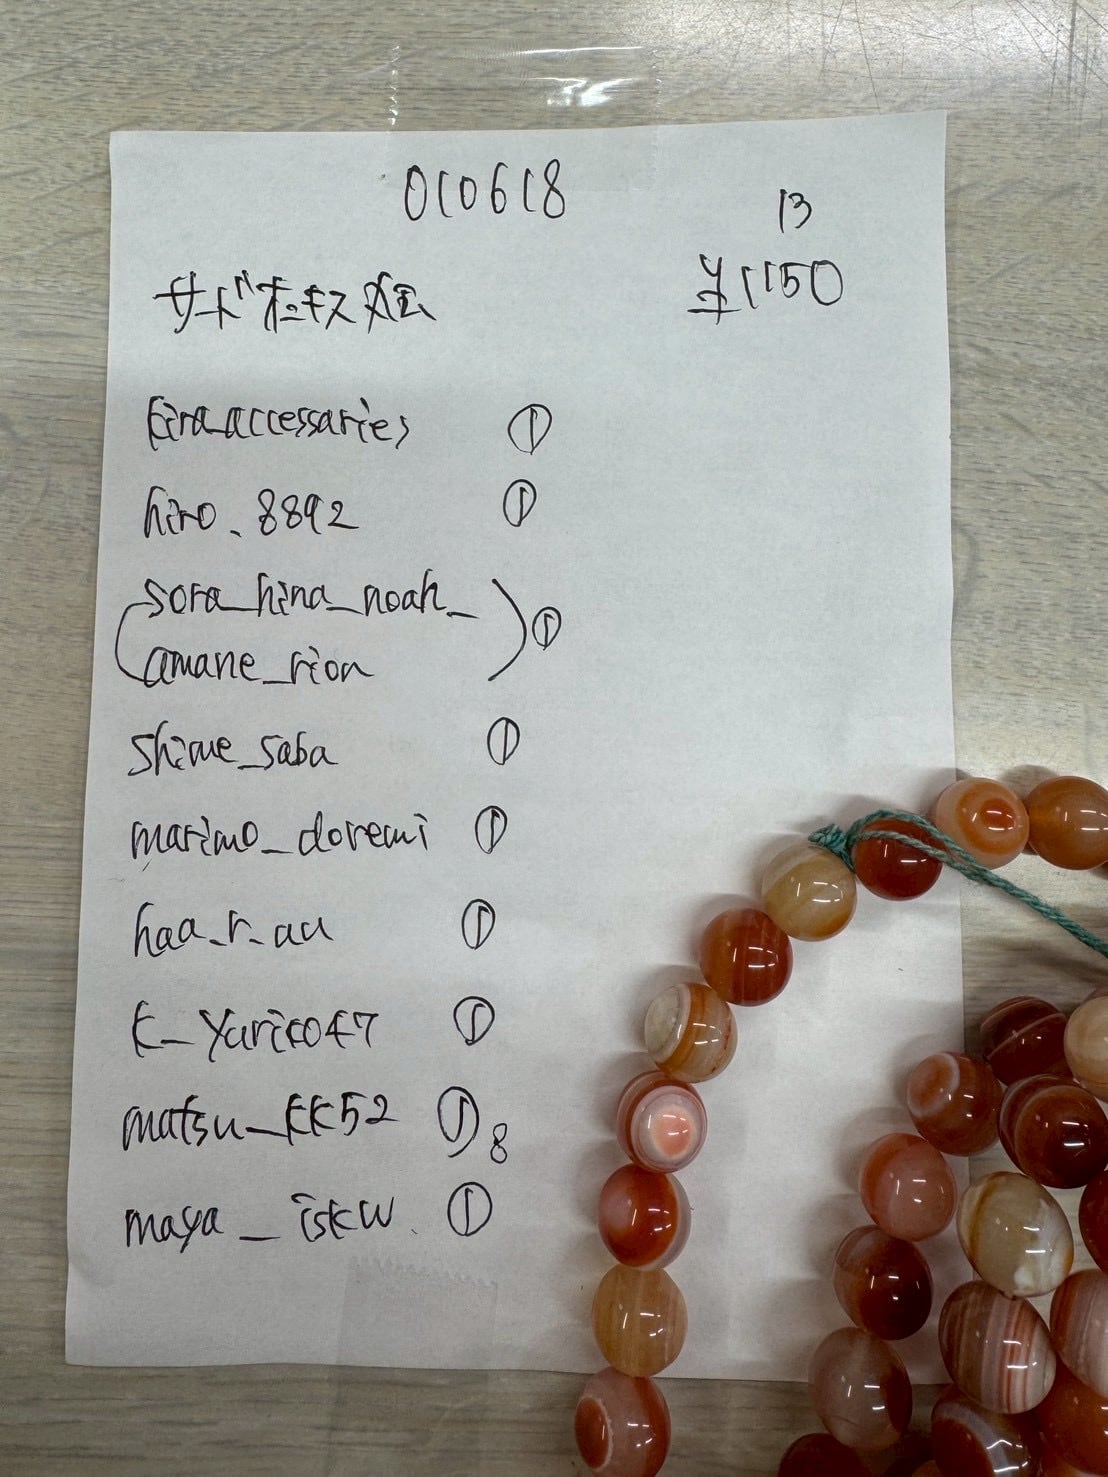 010618
13
サードオニキス 丸玉
¥1150
kira_accessaries ①
hiro.8892 ①
(sora_hina_noah_
amane_rion) ①
shime_saba ①
marimo_doremi ①
haa_r_au ①
k_yuriko47 ①
matsu_kk52 ① 8
maya_iskw ①